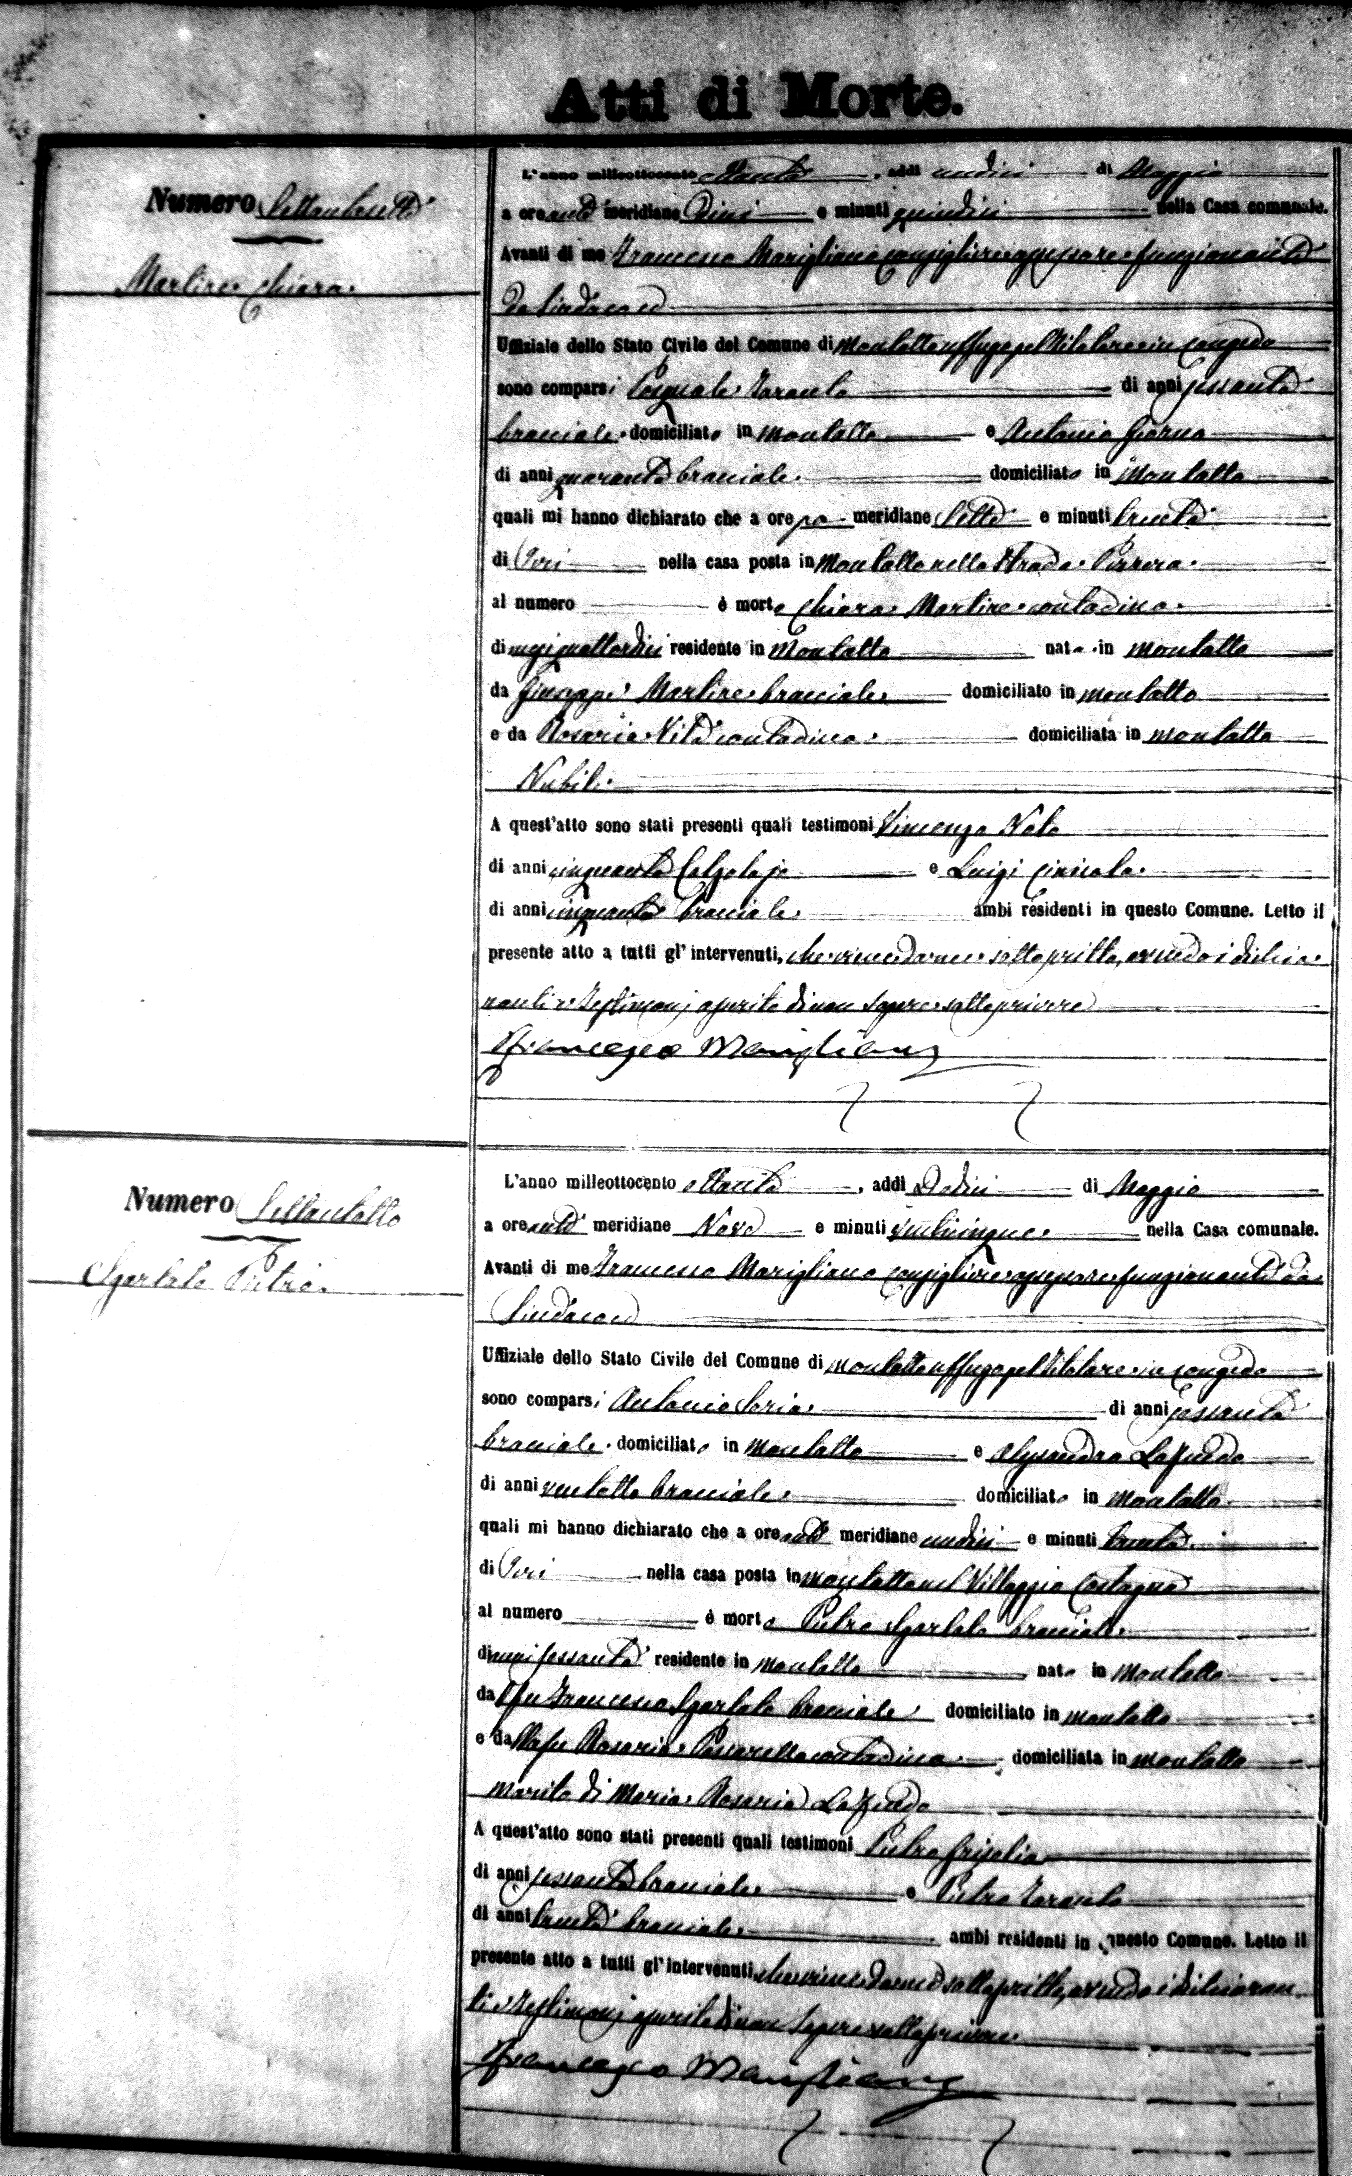 Atti di Morte.
Numero Settantasette
Martire Chiara
L'anno milleottocento ottanta, addi undici di Maggio
a ore anti meridiane Dieci e minuti quindici nella Casa comunale.
Avanti di me Francesco Marigliano consigliere assessore funzionante
da Sindaco ed
Uffiziale dello Stato Civile del Comune di Montalto Uffugo pel titolare in congedo
sono comparsi Pasquale Taranto di anni sessanta
bracciale domiciliato in Montalto e Antonio Giorno
di anni quaranta bracciale domiciliato in Montalto
quali mi hanno dichiarato che a ore po meridiane Sette e minuti trenta
di Jeri nella casa posta in Montalto nella Strada
al numero è morta Chiara Martire contadina
di anni quattordici residente in Montalto nata in Montalto
da Giuseppe Martire bracciale domiciliato in Montalto
e da Rosaria Vita contadina domiciliata in Montalto
Nubile
A quest'atto sono stati presenti quali testimoni Vincenzo Nola
di anni cinquanta Calzolajo e Luigi
di anni cinquanta bracciale ambi residenti in questo Comune. Letto il
presente atto a tutti gl'intervenuti, che viene da me sottoscritto, avendo i dichia
ranti e Testimonj asserito di non sapere sottoscrivere
Francesco Marigliano
Numero Settantotto
Sgarlato Pietro
L'anno milleottocento ottanta, addi Dodici di Maggio
a ore anti meridiane Nove e minuti venticinque nella Casa comunale.
Avanti di me Francesco Marigliano consigliere assessore funzionante da
Sindaco ed
Uffiziale dello Stato Civile del Comune di Montalto Uffugo pel titolare in congedo
sono comparsi Antonio Soria di anni sessanta
bracciale domiciliato in Montalto e Alessandro
di anni ventotto bracciale domiciliato in Montalto
quali mi hanno dichiarato che a ore anti meridiane undici e minuti trenta
di Jeri nella casa posta in Montalto nel Villaggio Castagna
al numero è morto Pietro Sgarlato bracciale
di anni sessanta residente in Montalto nato in Montalto
da fu Francesco Sgarlato bracciale domiciliato in Montalto
e dalla fu Rosaria Passarella contadina domiciliata in Montalto
marito di Maria Rosaria
A quest'atto sono stati presenti quali testimoni Pietro Grisolia
di anni sessanta bracciale e Pietro Taranto
di anni trenta bracciale ambi residenti in questo Comune. Letto il
presente atto a tutti gl'intervenuti, che viene da me sottoscritto, avendo i dichiaran
ti e Testimonj asserito di non sapere sottoscrivere
Francesco Marigliano